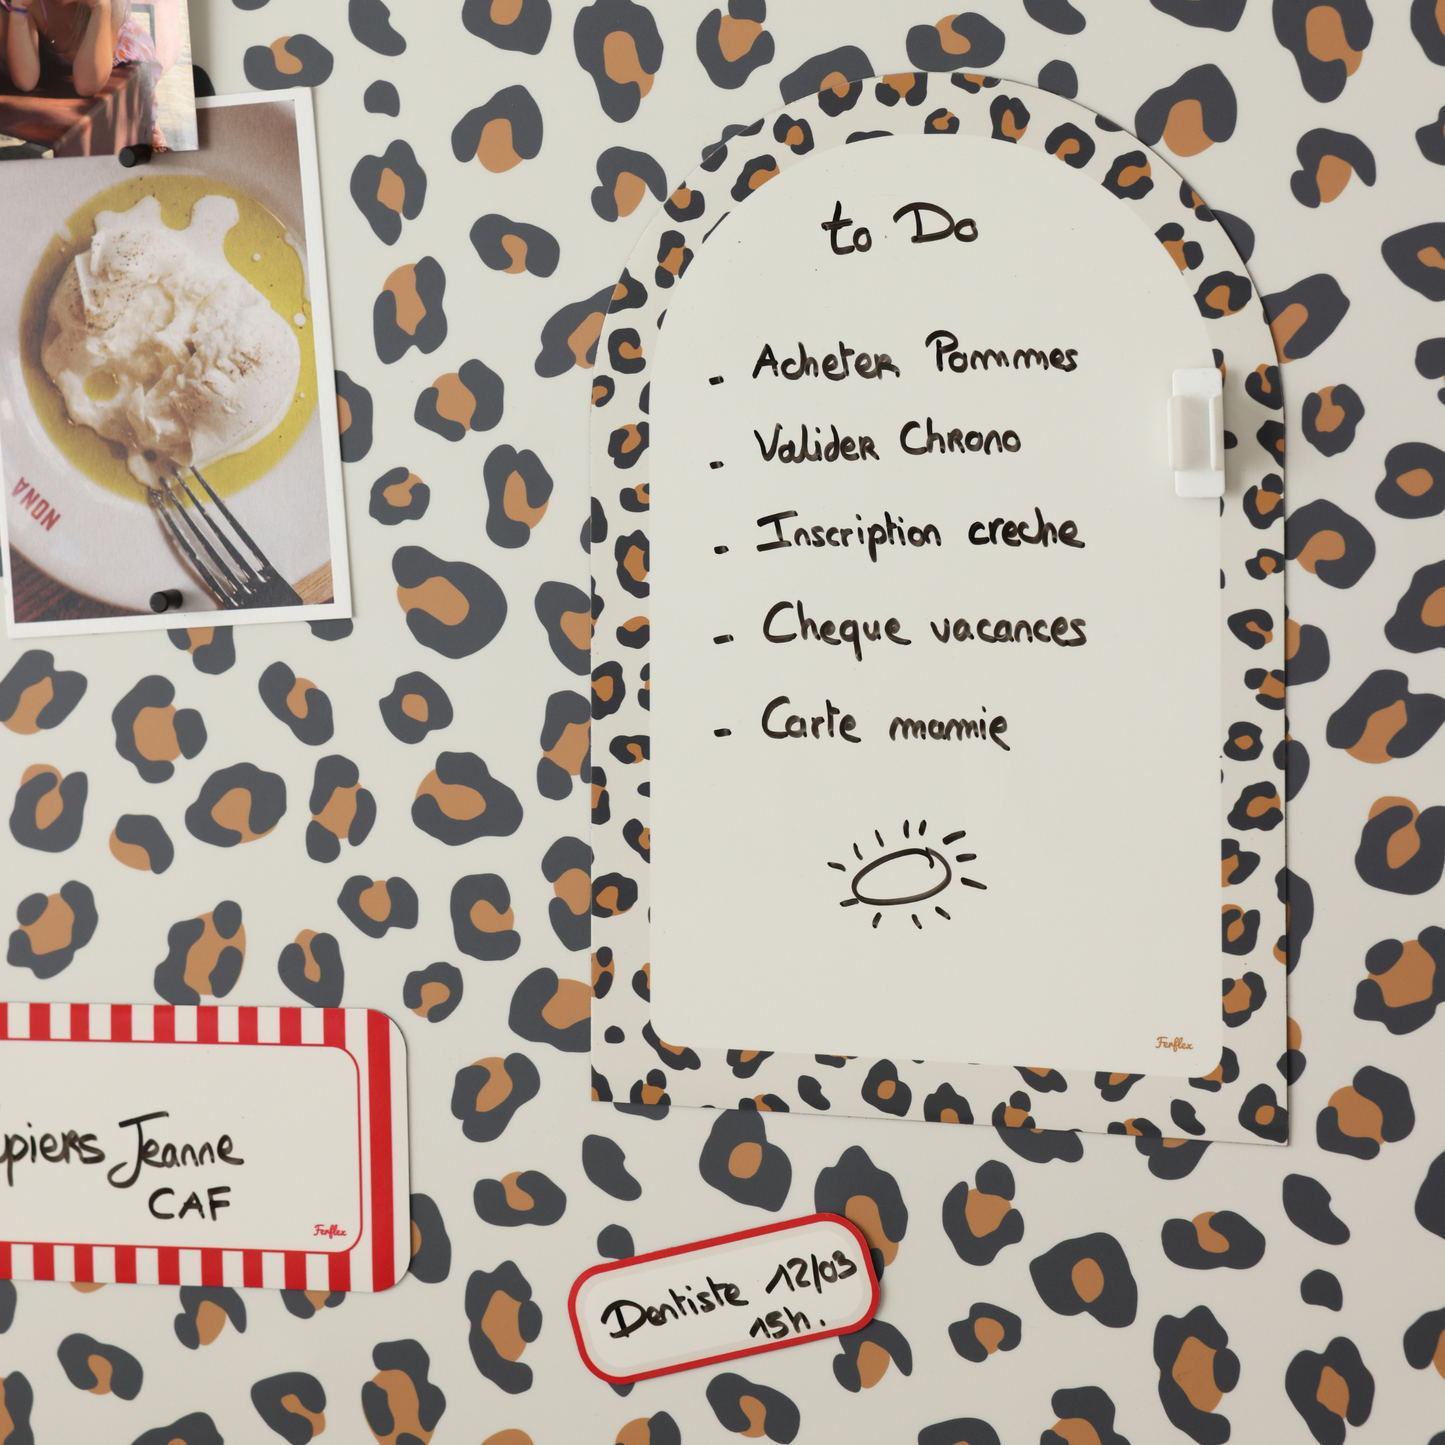 to Do
- Acheter Pommes
- Valider Chrono
- Inscription creche
- Cheque vacances
- Carte mamie
Ferflex
NONA
Jeanne
CAF
Ferflex
Dentiste 12/03
15h.